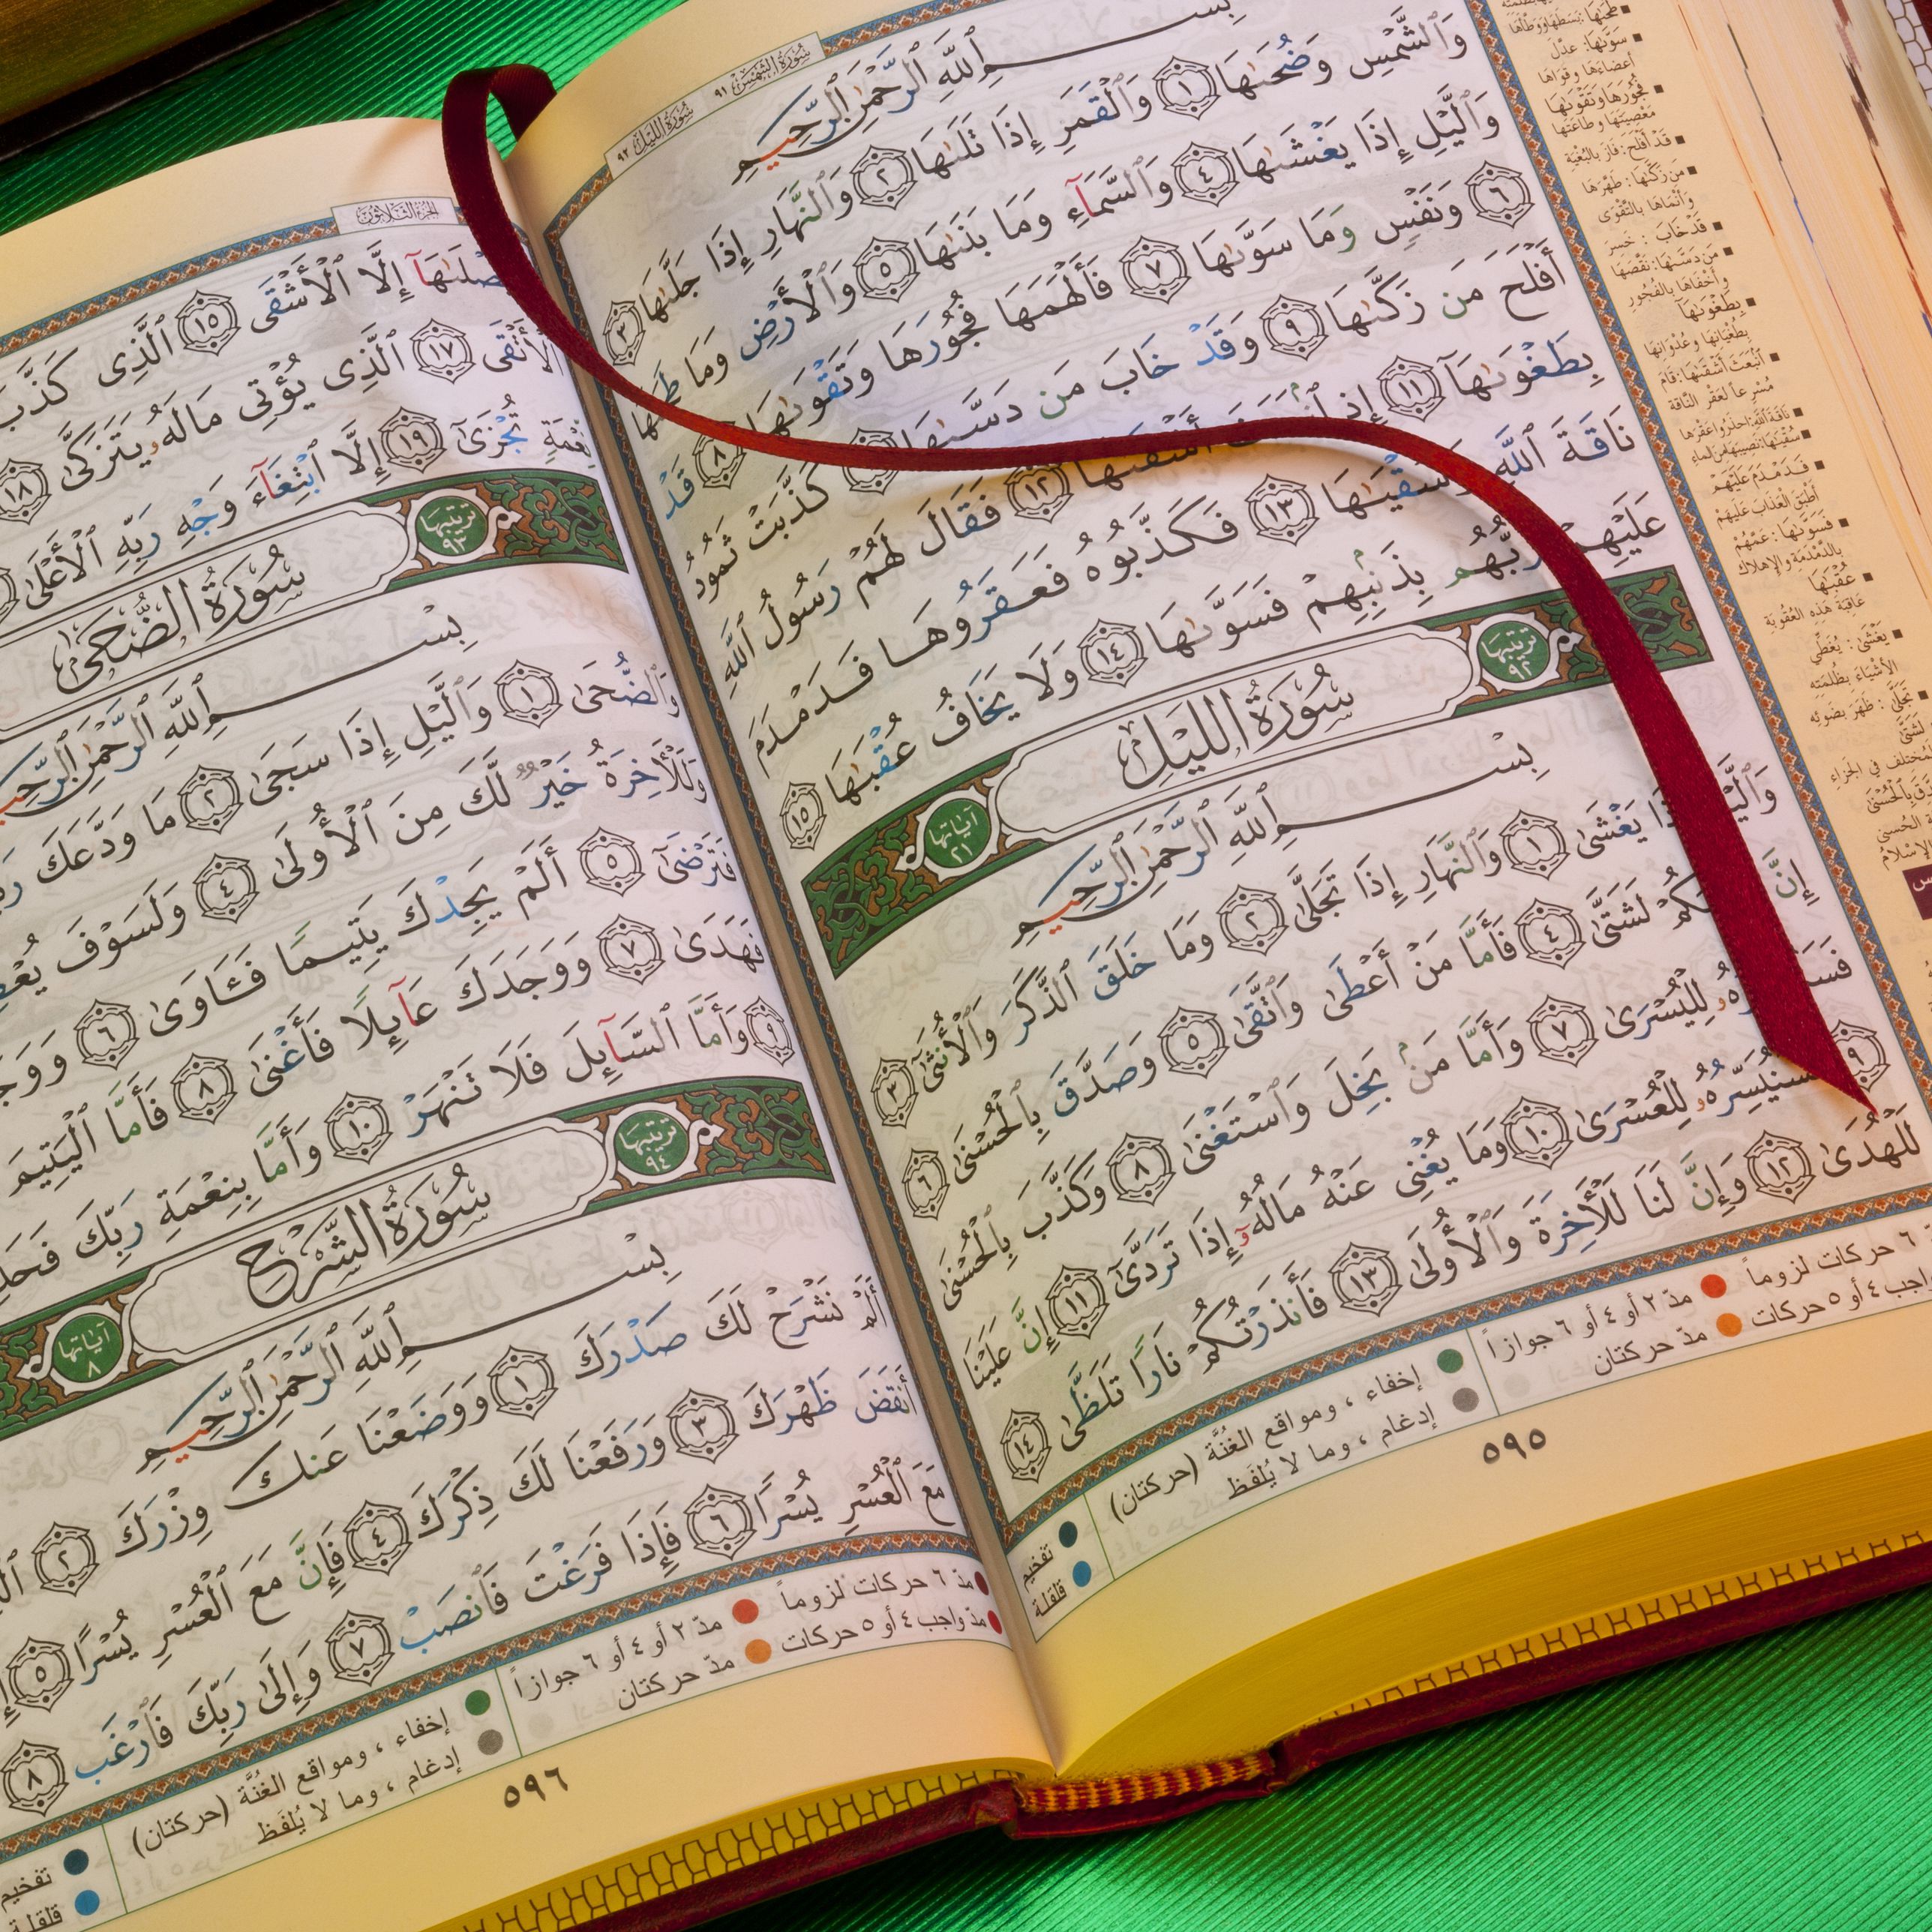 سُورَةُ الشَّمْسِ ٩١
سُورَةُ اللَّيْلِ ٩٢
بِسْمِ ٱللَّهِ ٱلرَّحْمَٰنِ ٱلرَّحِيمِ
وَٱلشَّمْسِ وَضُحَىٰهَا ١ وَٱلْقَمَرِ إِذَا تَلَىٰهَا ٢ وَٱلنَّهَارِ إِذَا جَلَّىٰهَا ٣
وَٱلَّيْلِ إِذَا يَغْشَىٰهَا ٤ وَٱلسَّمَآءِ وَمَا بَنَىٰهَا ٥ وَٱلْأَرْضِ وَمَا طَحَىٰهَا
٦ وَنَفْسٍ وَمَا سَوَّىٰهَا ٧ فَأَلْهَمَهَا فُجُورَهَا وَتَقْوَىٰهَا ٨ قَدْ
أَفْلَحَ مَن زَكَّىٰهَا ٩ وَقَدْ خَابَ مَن دَسَّىٰهَا كَذَّبَتْ ثَمُودُ
بِطَغْوَىٰهَآ ١١ إِذِ أَشْقَىٰهَا ١٢ فَقَالَ لَهُمْ رَسُولُ ٱللَّهِ
نَاقَةَ ٱللَّهِ وَسُقْيَٰهَا ١٣ فَكَذَّبُوهُ فَعَقَرُوهَا فَدَمْدَمَ
عَلَيْهِمْ رَبُّهُم بِذَنۢبِهِمْ فَسَوَّىٰهَا ١٤ وَلَا يَخَافُ عُقْبَٰهَا ١٥
تَرْتِيبُهَا ٩٢ سُورَةُ اللَّيْلِ آيَاتُهَا ٢١
بِسْمِ ٱللَّهِ ٱلرَّحْمَٰنِ ٱلرَّحِيمِ
وَٱلَّيْلِ إِذَا يَغْشَىٰ ١ وَٱلنَّهَارِ إِذَا تَجَلَّىٰ ٢ وَمَا خَلَقَ ٱلذَّكَرَ وَٱلْأُنثَىٰٓ ٣
إِنَّ سَعْيَكُمْ لَشَتَّىٰ ٤ فَأَمَّا مَنْ أَعْطَىٰ وَٱتَّقَىٰ ٥ وَصَدَّقَ بِٱلْحُسْنَىٰ ٦
فَسَنُيَسِّرُهُۥ لِلْيُسْرَىٰ ٧ وَأَمَّا مَنۢ بَخِلَ وَٱسْتَغْنَىٰ ٨ وَكَذَّبَ بِٱلْحُسْنَىٰ
٩ فَسَنُيَسِّرُهُۥ لِلْعُسْرَىٰ ١٠ وَمَا يُغْنِى عَنْهُ مَالُهُۥٓ إِذَا تَرَدَّىٰٓ ١١ إِنَّ عَلَيْنَا
لَلْهُدَىٰ ١٢ وَإِنَّ لَنَا لَلْأَخِرَةَ وَٱلْأُولَىٰ ١٣ فَأَنذَرْتُكُمْ نَارًا تَلَظَّىٰ ١٤
٦ حركات لزوماً مدّ ٢ أو ٤ أو ٦ جوازاً إخفاء ، ومواقع الغُنَّة (حركتان) تفخيم
واجب ٤ أو ٥ حركات مدّ حركتان إدغام ، وما لا يُلفَظ قلقلة
٥٩٥
طَحَىٰهَا: بَسَطَهَا وَوَطَّأَهَا
سَوَّىٰهَا: عدَّلَ
أعضاءَها وقُواها
فُجُورَهَا وَتَقْوَىٰهَا
معْصِيَتَها وطاعَتَها
قَدْ أَفْلَحَ: فازَ بالبُغْيَة
مَن زَكَّىٰهَا: طهَّرَها
وأنْماها بالتَّقْوى
قَدْ خَابَ: خَسِرَ
مَن دَسَّىٰهَا: نَقَصَها
وأخْفاها بالفُجُورِ
بِطَغْوَىٰهَآ
بطُغْيانِها وعُدْوانِها
ٱنۢبَعَثَ أَشْقَىٰهَا: قامَ
مُسْرِعاً لعَقْرِ النّاقة
نَاقَةَ ٱللَّهِ: احذَروا عَقْرَها
سُقْيَٰهَا: نصيبَها من الماء
فَدَمْدَمَ عَلَيْهِمْ
أطبَقَ العذابَ عليهمْ
فَسَوَّىٰهَا: عمَّهُمْ
بالدَّمْدَمَة والإهلاك
عُقْبَٰهَا
عاقِبةَ هذه العُقوبَة
يَغْشَىٰ: يُغَطِّي
الأشياءَ بظُلمَتِه
تَجَلَّىٰ: ظَهَرَ بضَوئِه
لَشَتَّىٰ
لمُختلف في الجزاءِ
الجُزْءُ الثَّلَاثُونَ
يَصْلَىٰهَآ إِلَّا ٱلْأَشْقَى ١٥ ٱلَّذِى كَذَّبَ
ٱلْأَتْقَى ١٧ ٱلَّذِى يُؤْتِى مَالَهُۥ يَتَزَكَّىٰ ١٨
نِّعْمَةٍ تُجْزَىٰٓ ١٩ إِلَّا ٱبْتِغَآءَ وَجْهِ رَبِّهِ ٱلْأَعْلَىٰ
تَرْتِيبُهَا ٩٣ سُورَةُ الضُّحَىٰ
بِسْمِ ٱللَّهِ ٱلرَّحْمَٰنِ ٱلرَّحِيمِ
وَٱلضُّحَىٰ ١ وَٱلَّيْلِ إِذَا سَجَىٰ ٢ مَا وَدَّعَكَ
وَلَلْأَخِرَةُ خَيْرٌ لَّكَ مِنَ ٱلْأُولَىٰ ٤ وَلَسَوْفَ
فَتَرْضَىٰٓ ٥ أَلَمْ يَجِدْكَ يَتِيمًا فَـَٔاوَىٰ ٦
فَهَدَىٰ ٧ وَوَجَدَكَ عَآئِلًا فَأَغْنَىٰ ٨ فَأَمَّا ٱلْيَتِيمَ
٩ وَأَمَّا ٱلسَّآئِلَ فَلَا تَنْهَرْ ١٠ وَأَمَّا بِنِعْمَةِ رَبِّكَ
تَرْتِيبُهَا ٩٤ سُورَةُ الشَّرْحِ آيَاتُهَا ٨
بِسْمِ ٱللَّهِ ٱلرَّحْمَٰنِ ٱلرَّحِيمِ
أَلَمْ نَشْرَحْ لَكَ صَدْرَكَ ١ وَوَضَعْنَا عَنكَ وِزْرَكَ ٢
أَنقَضَ ظَهْرَكَ ٣ وَرَفَعْنَا لَكَ ذِكْرَكَ ٤ فَإِنَّ مَعَ ٱلْعُسْرِ يُسْرًا ٥
مَعَ ٱلْعُسْرِ يُسْرًا ٦ فَإِذَا فَرَغْتَ فَٱنصَبْ ٧ وَإِلَىٰ رَبِّكَ فَٱرْغَب ٨
مدّ ٦ حركات لزوماً مدّ ٢ أو ٤ أو ٦ جوازاً إخفاء ، ومواقع الغُنَّة (حركتان) تفخيم
مدّ واجب ٤ أو ٥ حركات مدّ حركتان إدغام ، وما لا يُلفَظ قلقلة
٥٩٦